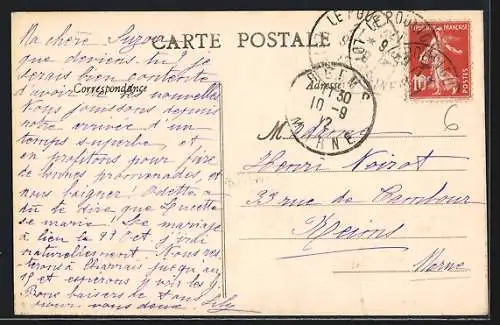 CARTE POSTALE
Correspondance
Adresse
Ma chère Suzon
que deviens tu? Je
serais bien contente
d'avoir de tes nouvelles
Nous jouissons depuis
notre arrivée d'un
temps superbe et
en profitons pour faire
de bonnes promenades, et
nous baigner! Odette a
dû te dire que Lucette
se marie! Le mariage
a lieu le Oct. j'irai
naturellement. Nous
jusqu'au
et espérons y voir les
Bons baisers de tous
pour vous deux. Lily
M
Henri Noirot
33 rue de Tambour
Reims
Marne
6
REIMS
11 30
10 - 9
MARNE
LE POU
POSTES
10